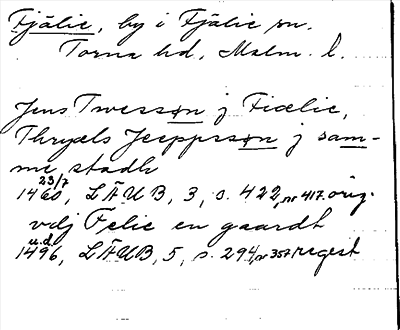 Fjälie, by i Fjälie sn.
Torna hd, Malm. l.
Jens Twessøn j Fiælie,
Thryels Jeeppssøn j sam-
me stadh
23/7
1460, LÄUB, 3, s. 422, nr 417. orig.
vdj Felie en gaardt
u.d.
1496, LÄUB, 5, s. 294, nr 357 regest